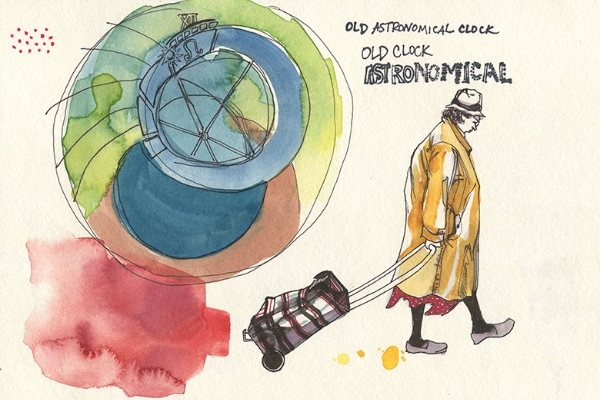 XII
OLD ASTRONOMICAL CLOCK
OLD CLOCK
ASTRONOMICAL